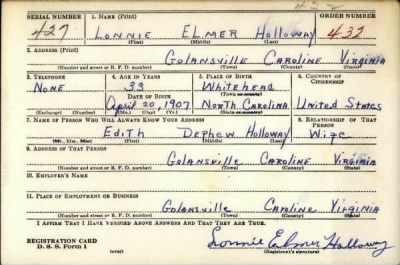 432
SERIAL NUMBER 1. NAME (Print) ORDER NUMBER
427 LONNIE ELMER HOLLOWAY 432
(First) (Middle) (Last)
2. ADDRESS (Print)
GOLANSVILLE CAROLINE VIRGINIA
(Number and street or R. F. D. number) (Town) (County) (State)
3. TELEPHONE 4. AGE IN YEARS 5. PLACE OF BIRTH 6. COUNTRY OF CITIZENSHIP
NONE 33 WHITEHEAD
DATE OF BIRTH (Town or county)
April 20, 1907 NORTH CAROLINA UNITED STATES
(Exchange) (Number) (Mo.) (Day) (Yr.) (State or country)
7. NAME OF PERSON WHO WILL ALWAYS KNOW YOUR ADDRESS 8. RELATIONSHIP OF THAT PERSON
EDITH DEPHEW HOLLOWAY WIFE
(Mr., Mrs., Miss) (First) (Middle) (Last)
9. ADDRESS OF THAT PERSON
GOLANSVILLE CAROLINE VIRGINIA
(Number and street or R. F. D. number) (Town) (County) (State)
10. EMPLOYER'S NAME
11. PLACE OF EMPLOYMENT OR BUSINESS
GOLANSVILLE CAROLINE VIRGINIA
(Number and street or R. F. D. number) (Town) (County) (State)
I AFFIRM THAT I HAVE VERIFIED ABOVE ANSWERS AND THAT THEY ARE TRUE.
REGISTRATION CARD Lonnie Elmer Holloway
D. S. S. Form 1 (over) (Registrant's signature)